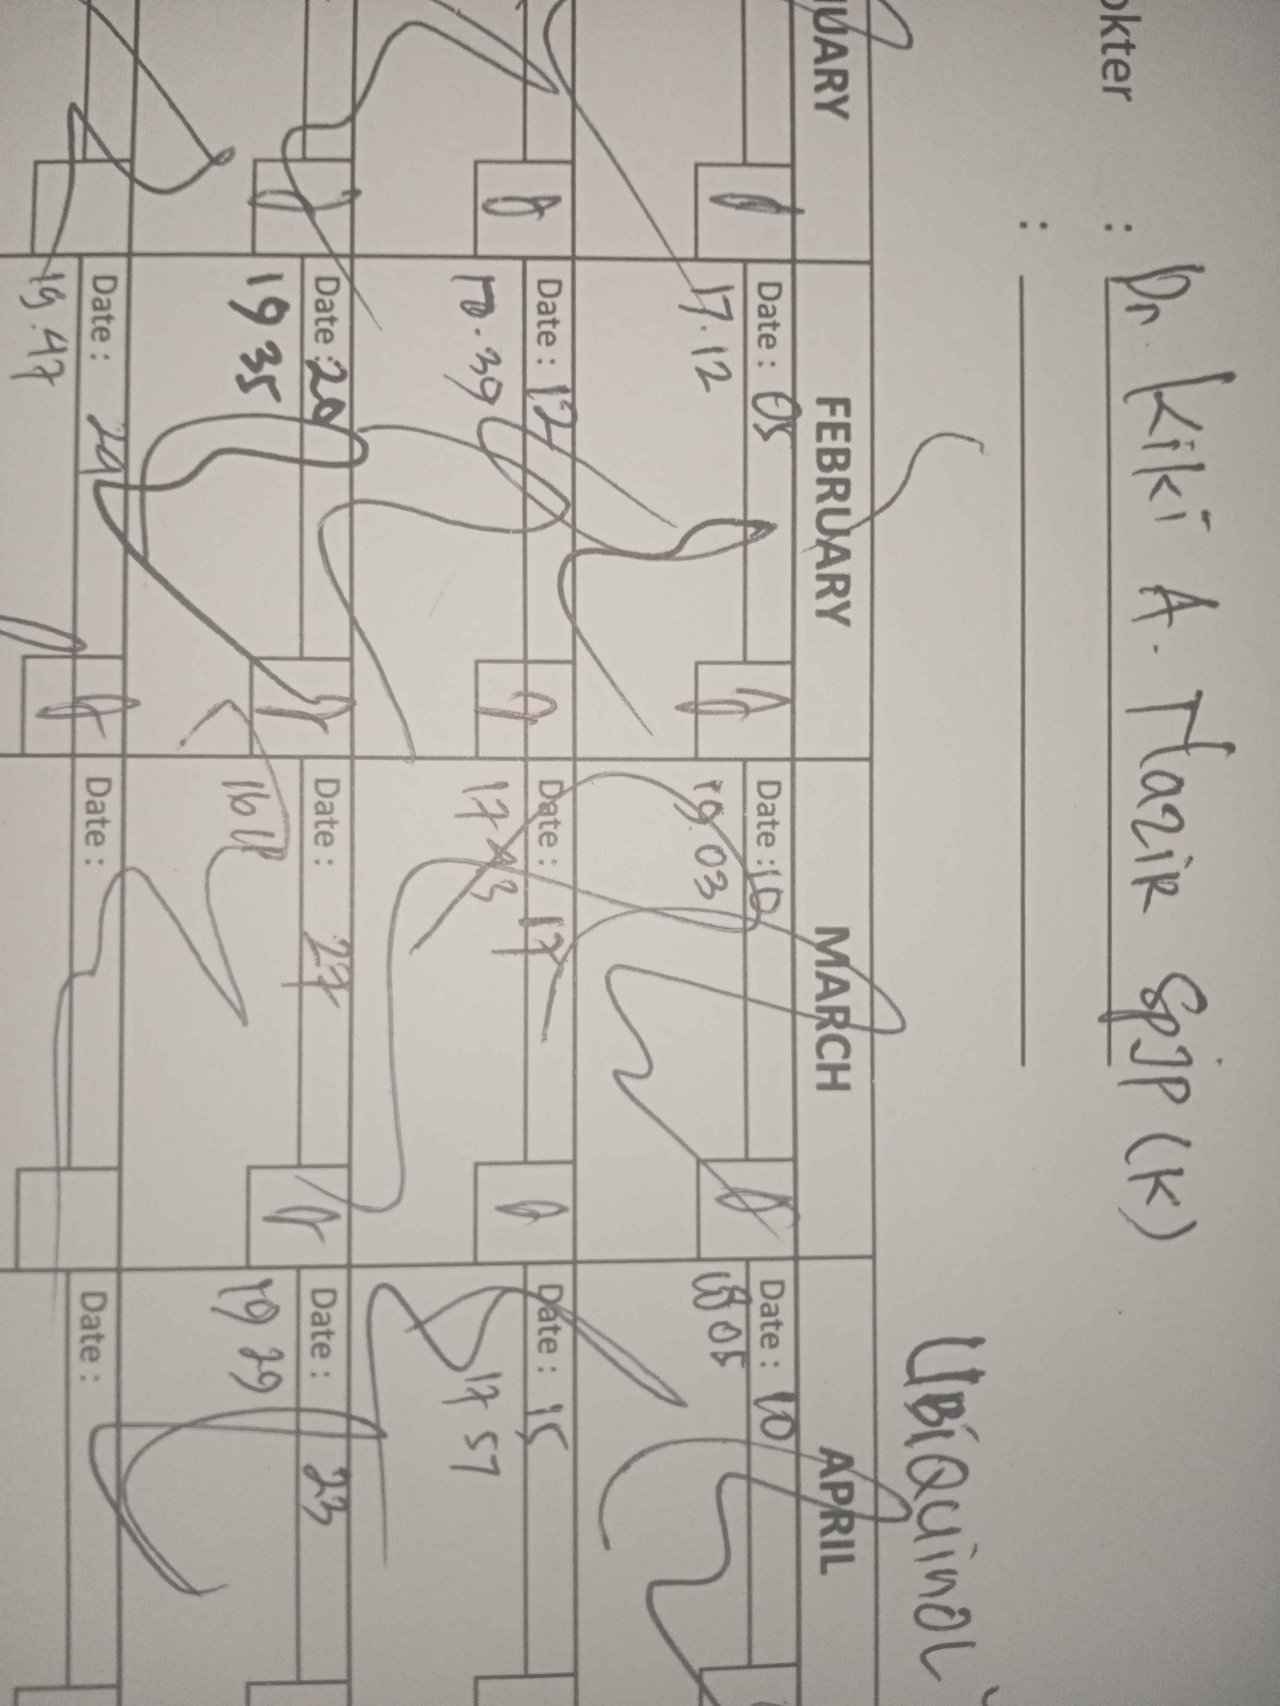 okter : Dr. Kiki A. Nazir SpJP (K)
:
UBiQuinol
UARY FEBRUARY MARCH APRIL
Date : 05 Date : 10 Date : 10
17.12 19.03 18 05
Date : 12 Date : 17 Date : 15
39 17 43 17 57
Date : 20 Date : 27 Date : 23
19 35 16 19 29
Date : 29 Date : Date :
19.47